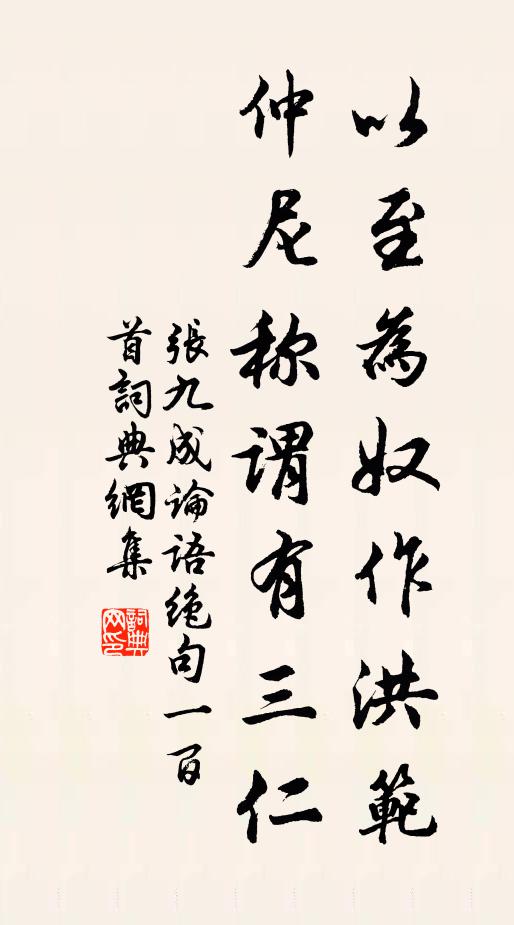 以至為奴作洪範
仲尼称謂有三仁
張九成論語絶句一百
首詞典網集
詞典網印